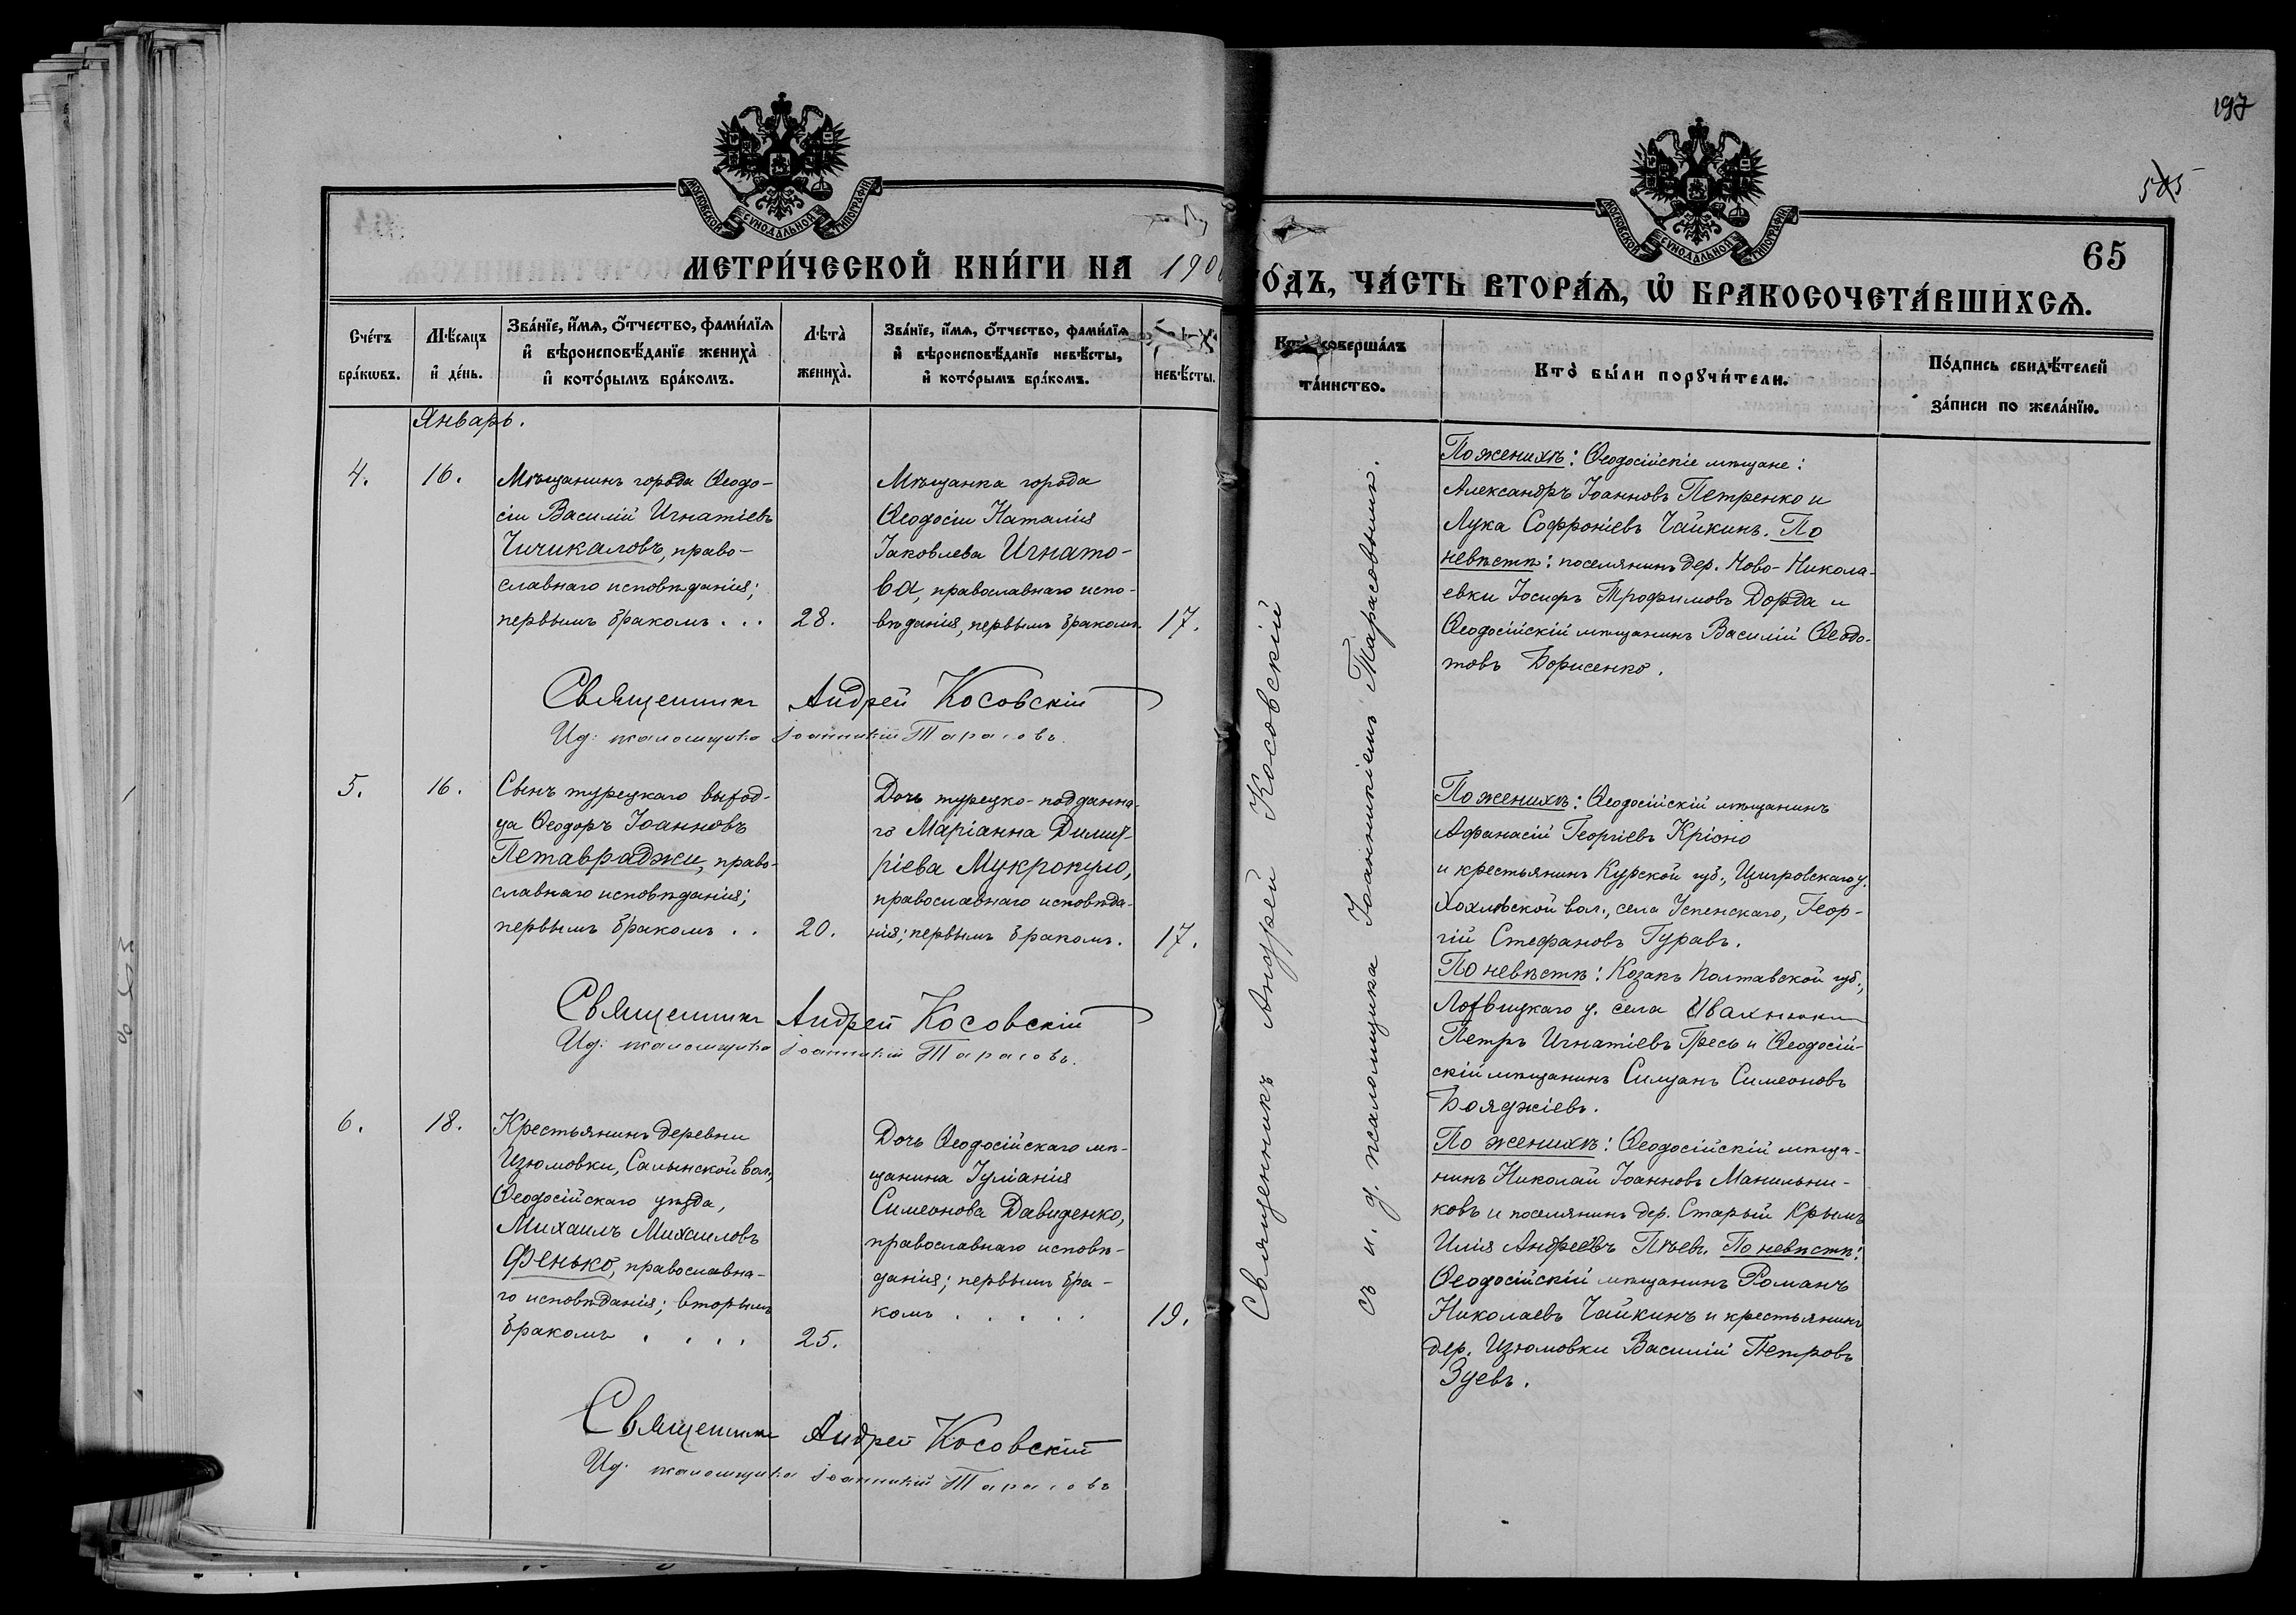 197
505
65
МОСКОВСКОЙ СУНОДАЛЬНОЙ ТИПОГРАФІИ
МОСКОВСКОЙ СУНОДАЛЬНОЙ ТИПОГРАФІИ
МЕТРИ́ЧЕСКОЙ КНИ́ГИ НА 190
ГО́ДЪ, ЧА́СТЬ ВТОРА́Ѧ, Ѡ҆ БРАКОСОЧЕТА́ВШИХСѦ.
Сче́тъ бра́кѡвъ.
Мѣ́сяцъ и҆ де́нь.
Зва́нїе, и҆́мѧ, ѻ҆́тчество, фами́лїѧ
и҆ вѣроисповѣ́данїе жениха̀
и҆ кото́рымъ бра́комъ.
Лѣта̀ жениха̀.
Зва́нїе, и҆́мѧ, ѻ҆́тчество, фами́лїѧ
и҆ вѣроисповѣ́данїе невѣ́сты,
и҆ кото́рымъ бра́комъ.
невѣ́сты.
Кто̀ соверша́лъ
та́инство.
Кто̀ бы́ли порꙋчи́тели.
По́дпись свидѣ́телей
за́писи по жела́нїю.
Январь.
4.
16.
Мѣщанинъ города Ѳеодо-
сіи Василій Игнатіевъ
Чичикаловъ, право-
славнаго исповѣданія;
первымъ бракомъ . . .
28.
Мѣщанка города
Ѳеодосіи Наталія
Іаковлева Игнато-
ва, православнаго испо-
вѣданія, первымъ бракомъ.
17.
По женихѣ: Ѳеодосійскіе мѣщане:
Александръ Іоанновъ Петренко и
Лука Софроніевъ Чайкинъ. По
невѣстѣ: поселянинъ дер. Ново-Никола-
евки Іосифъ Трофимовъ Дорда и
Ѳеодосійскій мѣщанинъ Василій Ѳеодо-
товъ Борисенко.
Священникъ Андрей Косовскій
Ид: псаломщика Іоанникій Тарасовъ.
5.
16.
Сынъ турецкаго выход-
ца Ѳеодоръ Іоанновъ
Петавраджи, право-
славнаго исповѣданія;
первымъ бракомъ . .
20.
Дочь турецко-подданна-
го Маріанна Димит-
ріева Мукропуло,
православнаго исповѣда-
нія; первымъ бракомъ.
17.
По женихѣ: Ѳеодосійскій мѣщанинъ
Афанасій Георгіевъ Кріоно
и крестьянинъ Курской губ., Щигровскаго у.
Хохловской вол., села Успенскаго, Геор-
гій Стефановъ Гуравъ.
По невѣстѣ: Козакъ Полтавской губ.,
Лохвицкаго у. села Ивахники
Петръ Игнатіевъ Пресъ и Ѳеодосій-
скій мѣщанинъ Симеонъ Симеоновъ
Бояджіевъ.
Священникъ Андрей Косовскій
Ид: псаломщика Іоанникій Тарасовъ.
6.
18.
Крестьянинъ деревни
Изюмовки, Салынской вол.,
Ѳеодосійскаго уѣзда,
Михаилъ Михаиловъ
Фенько, православна-
го исповѣданія; вторымъ
бракомъ . . . .
25.
Дочь Ѳеодосійскаго мѣ-
щанина Іуліанія
Симеонова Давиденко,
православнаго исповѣ-
данія; первымъ бра-
комъ . . . . .
19.
По женихѣ: Ѳеодосійскій мѣща-
нинъ Николай Іоанновъ Манильни-
ковъ и поселянинъ дер. Старый Крымъ
Илія Андреевъ Пѣевъ. По невѣстѣ:
Ѳеодосійскій мѣщанинъ Романъ
Николаевъ Чайкинъ и крестьянинъ
дер. Изюмовки Василій Петровъ
Зуевъ.
Священникъ Андрей Косовскій
Ид: псаломщика Іоанникій Тарасовъ
Священникъ Андрей Косовскій
съ и. д. псаломщика Іоанникіемъ Тарасовымъ.